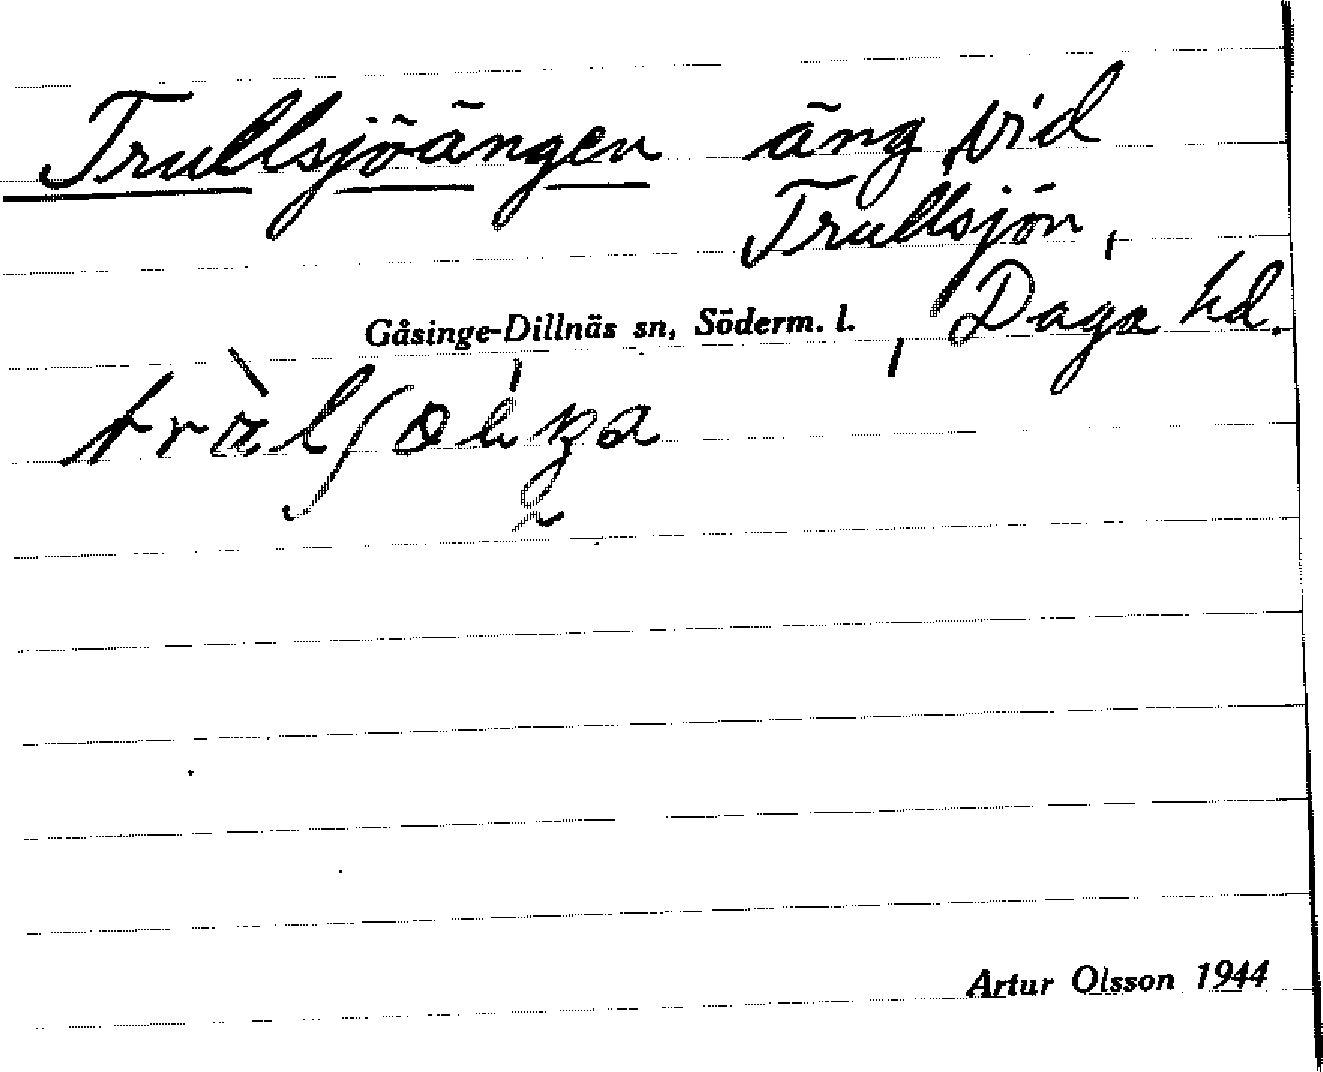 Trullsjöängen äng vid
Trullsjön,
Gåsinge-Dillnäs sn, Söderm. l., Daga hd.
Artur Olsson 1944